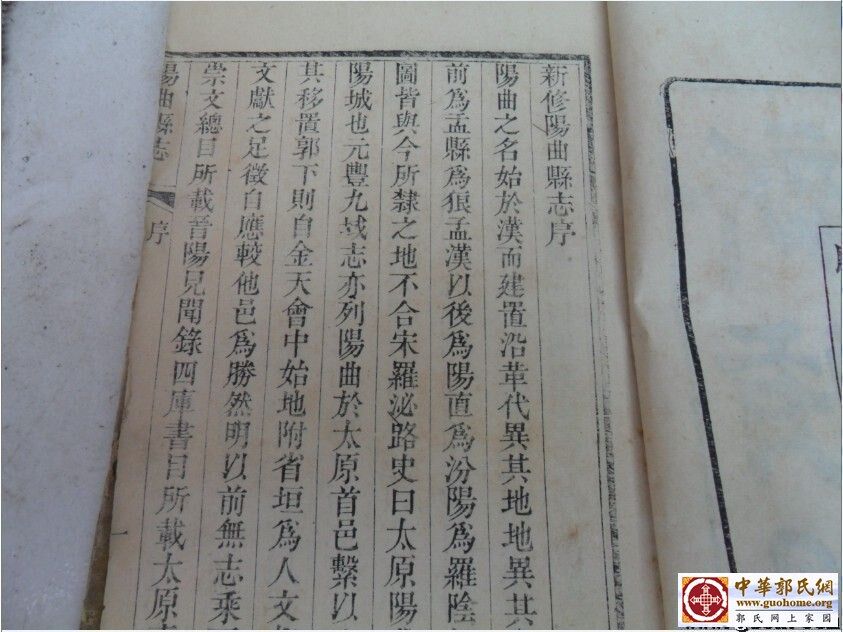 新修陽曲縣志序
陽曲之名始於漢而建置沿革代異其地地異其
前為盂縣為狼孟漢以後為陽直為汾陽為羅陰
圖皆與今所隸之地不合宋羅泌路史曰太原陽
陽城也元豐九域志亦列陽曲於太原首邑繫以
其移置郭下則自金天會中始地附省垣為人文
文獻之足徵自應較他邑為勝然明以前無志乘
崇文總目所載晉陽見聞錄四庫書目所載太原
陽曲縣志 序
一
中華郭氏網
www.guohome.org
郭氏网上家园